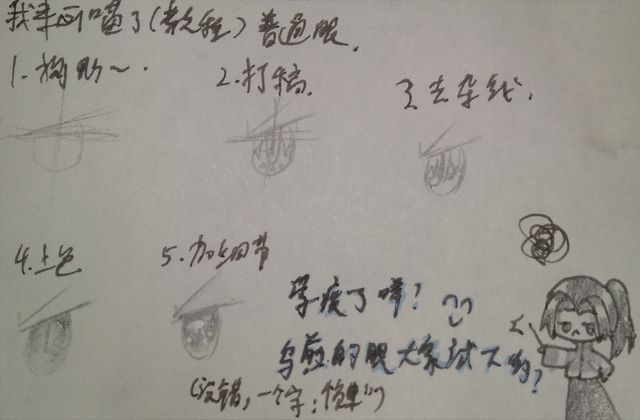 我来画喵了(教程)普通眼.
1.构形~.
2.打稿.
3去杂线.
4.上色
5.加细节
学废了咩?
的眼大家试下吧?
(没错,一个字:简单")